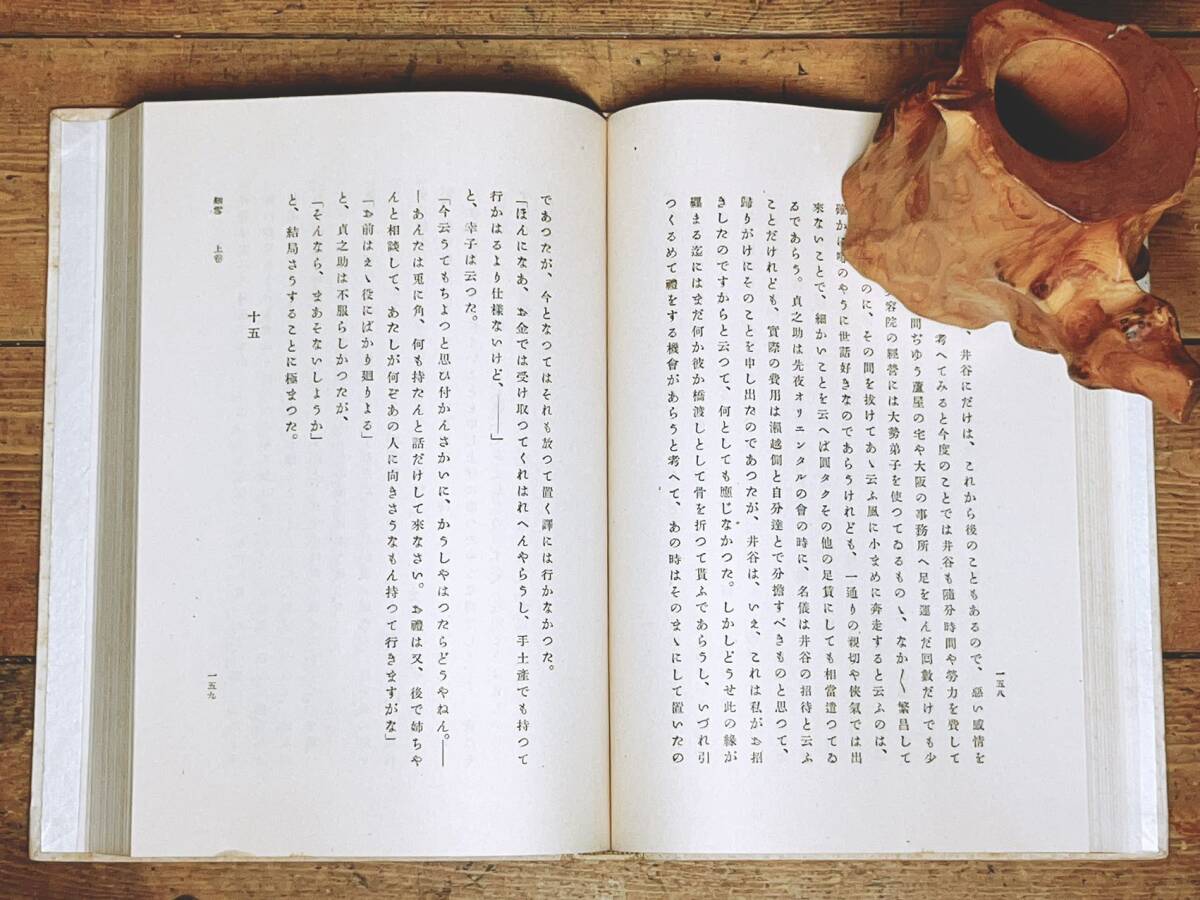 一五八
、井谷にだけは、これから後のこともあるので、惡い感情を
考へてみると今度のことでは井谷も隨分時間や勞力を費して
容院の經營には大勢弟子を使つてゐるものゝ、なか〳〵繁昌して
間ぢゆう蘆屋の宅や大阪の事務所へ足を運んだ囘數だけでも少
のに、その間を拔けてあゝ云ふ風に小まめに奔走すると云ふのは、
確かに噂のやうに世話好きなのであらうけれども、一通りの親切や俠氣では出
來ないことで、細かいことを云へば圓タクその他の足賃にしても相當遣つてゐ
るであらう。貞之助は先夜オリエンタルの會の時に、名儀は井谷の招待と云ふ
ことだけれども、實際の費用は瀨越側と自分達とで分擔すべきものと思つて、
歸りがけにそのことを申し出たのであつたが、井谷は、いえ、これは私がお招
きしたのですからと云つて、何としても應じなかつた。しかしどうせ此の緣が
纒まる迄にはまだ何か彼か橋渡しとして骨を折つて貰ふであらうし、いづれ引
つくるめて禮をする機會があらうと考へて、あの時はそのまゝにして置いたの
であつたが、今となつてはそれも放つて置く譯には行かなかつた。
「ほんになあ、お金では受け取つてくれはれへんやらうし、手土産でも持つて
行かはるより仕樣ないけど、――」
と、幸子は云つた。
「今云うてもちよつと思ひ付かんさかいに、かうしやはつたらどうやねん。―
―あんたは兎に角、何も持たんと話だけして來なさい。お禮は又、後で姉ちや
んと相談して、あたしが何ぞあの人に向きさうなもん持つて行きますがな」
「お前はえゝ役にばかり廻りよる」
と、貞之助は不服らしかつたが、
「そんなら、まあそないしようか」
と、結局さうすることに極まつた。
十五
細雪 上卷
一五九